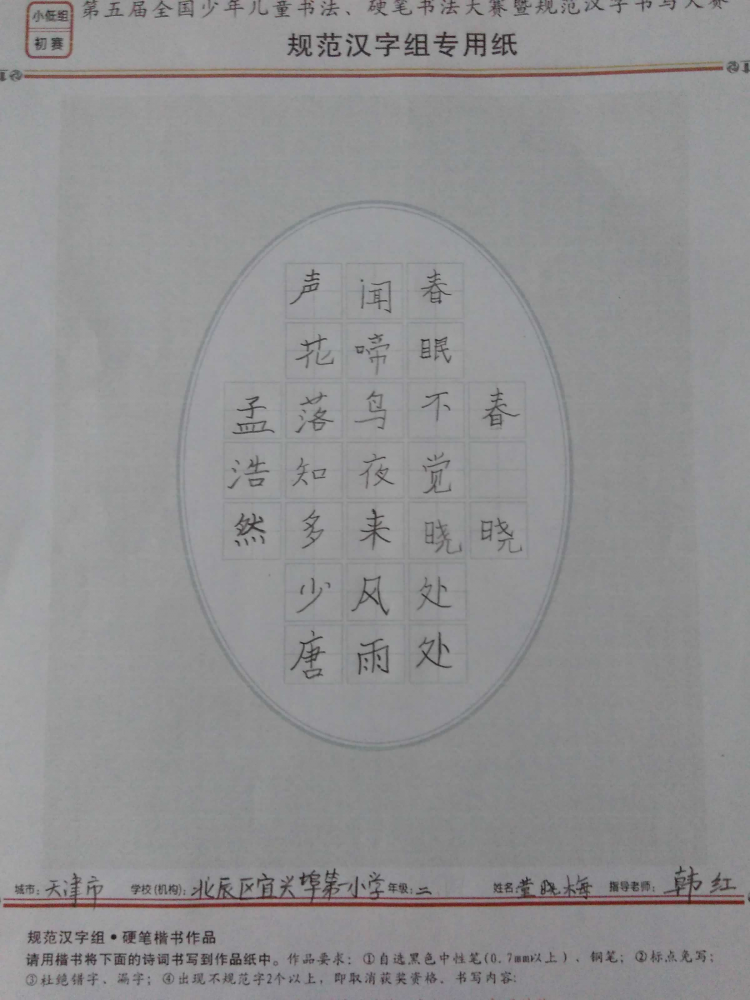 小低组
初赛
第五届全国少年儿童书法、硬笔书法大赛暨规范汉字书写大赛
规范汉字组专用纸
春 晓
春眠不觉晓处处
闻啼鸟夜来风雨
声花落知多少唐
孟浩然
城市：天津市 学校(机构)：北辰区宜兴埠第一小学 年级：二 姓名 董晓梅 指导老师：韩红
规范汉字组·硬笔楷书作品
请用楷书将下面的诗词书写到作品纸中。作品要求：①自选黑色中性笔(0.7mm以上)、钢笔；②标点免写；
③杜绝错字、漏字；④出现不规范字2个以上，即取消获奖资格。书写内容：